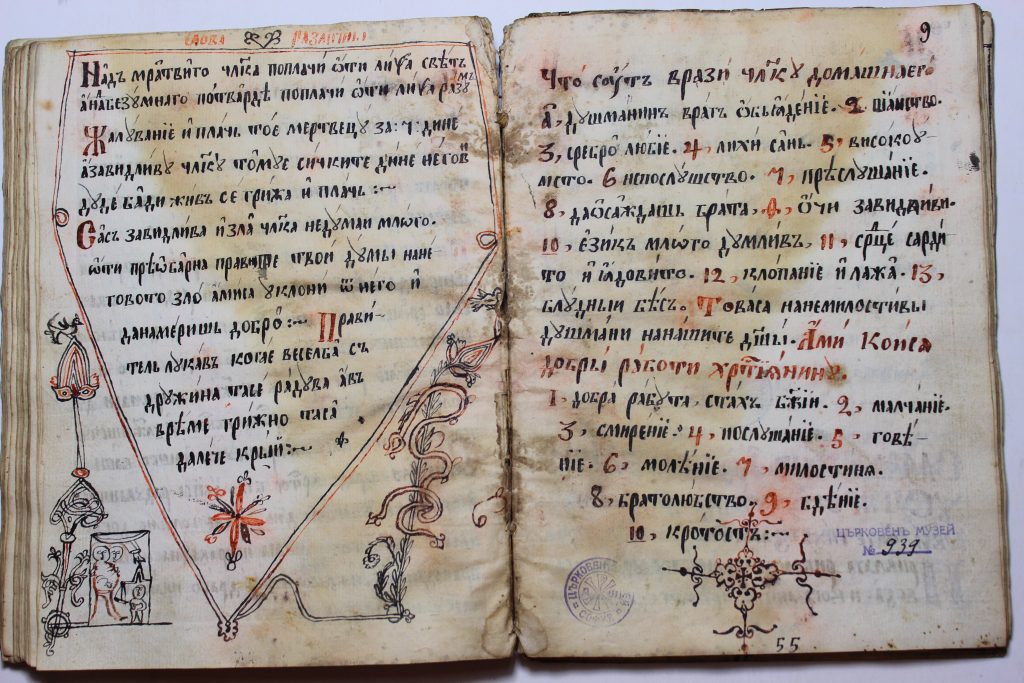 СЛОВА РАЗЛИЧНИ
Надъ мрътвито чл҃ка поплачи ѿти лиѱа свѣтъ
а надъ безумнаго потвърдѣ поплачи ѿти лиѱа разумъ
Жалуванїе и плачь тое мертвецу за ·ꙁ· дине
а завидливу чл҃ку томусе сичките дине негови
дуде бѫди живъ се грижа и плачь :~
Сасъ завидлива и зла чл҃ка недумаи млого.
ѿти прѣѡбарна правите твои думы на не
говото зло ами са уклони ѿ него и
да намеришь добро :~ Прави
тель лукавъ когае веселба съ
дружина тае радува а въ
врѣме грижно таса
далече крый :~
9
Что сѹтъ врази чл҃ку домашнаего
А, душманинъ врагъ ѡбыаденїе. 2. пїанство.
3, сребролюбїе. 4, лихи санъ. 5, високоу
мство. 6 непослушство. 7, прѣслушанїе.
8, да ѡсаждашь брата, 9, ѡчи завидливи.
10, езикъ млого думливъ, 11, срⷣце сарди
то и ꙗдовито. 12, клопанїе и лажа. 13,
блудный бѣсъ. Товаса на немилостивы
душмани на нашите дш҃ы. Ами коиса
добры работи хрⷭтїянину.
1, добра рабута, страхъ бж҃їи. 2, малчанїе.
3, смиренїе. 4, послушанїе. 5, говѣ
нїе. 6, молѣнїе. 7, милостина.
8, братолюбство. 9, бдѣнїе.
10, кротость :~
ЦЪРКОВЕНЪ МУЗЕЙ
№ 939
55